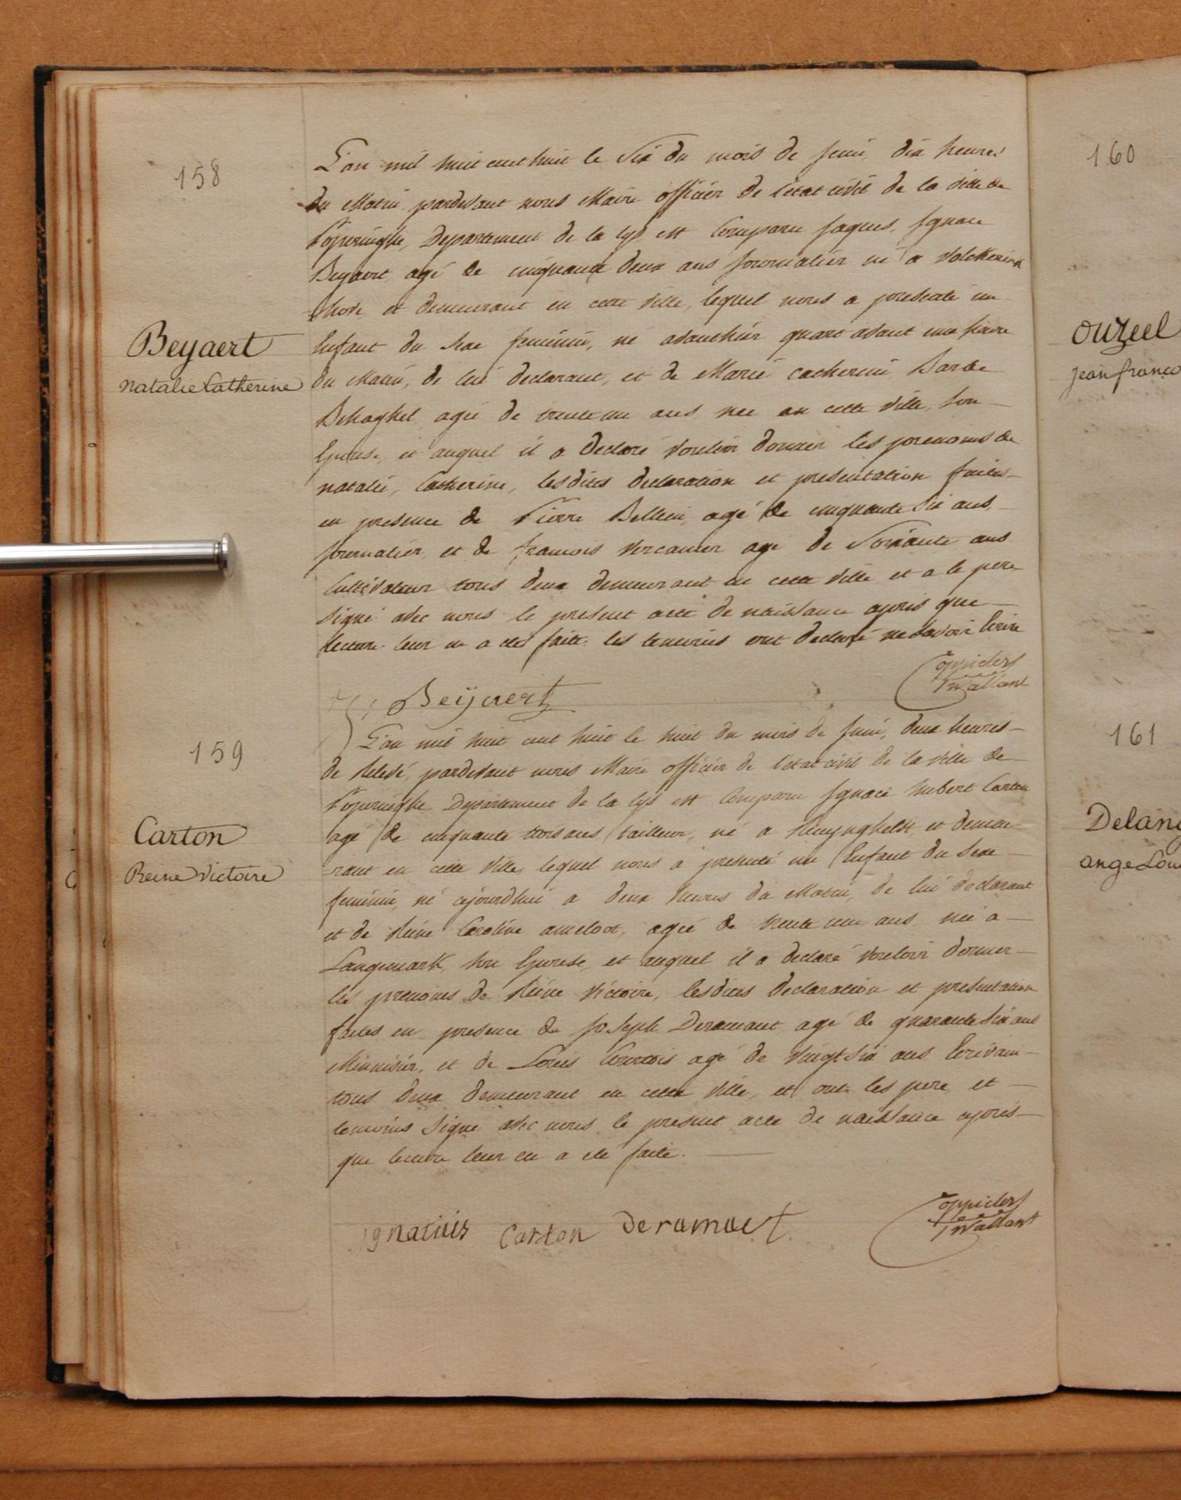 158
L'an mil huit cent huit le Six du mois de Juin, dix heures
du Matin, pardevant nous Maire officier de l'etat civil de la ville de
Poperinghe, Departement de la Lys est Comparu Jaques, Ignace
Beyaert, agé de cinquante deux ans Journalier né a
et demeurant en cette ville, lequel nous a presenté un
Beyaert
Enfant du Sexe feminin, né quart avant une heure
natalie Catherine
du Matin, de lui declarant, et de Marie catherine Barbe
agée de trente un ans née en cette ville, Son
Epouse, et auquel il a Declaré Vouloir donner les prenoms de
natalie, Catherine, lesdites declaration et presentation faites
en presence de Pierre Bellein, agé de cinquante Six ans,
Journalier, et de francois Vercamer agé de Soixante ans
Cultivateur tous deux demeurant en cette Ville et a le pere
Signé avec nous le present acte de naissance après que
lecture leur en a eté faite. les temoins ont declaré ne Savoir Ecrire
Beyaert
159
L'an mil huit cent huit le huit du mois de Juin, deux heures
de relevé, pardevant nous Maire officier de l'etat civil de la ville de
Poperinghe Departement de la Lys est Comparu Ignace hubert Carton
Carton
agé de cinquante trois ans tailleur, né a Reninghelst et demeu-
Reine Victoire
rant en cette Ville, lequel nous a presenté un Enfant du Sexe
feminin, né ajourdhui a deux heures du Matin, de lui declarant
et de Reine Caroline ameloot, agée de trente un ans née a
Langemark, Son Epouse, et auquel il a declaré Vouloir donner
les prenoms de Reine Victoire, lesdites declaration et presentation
faites en presence de Joseph Deramaut agé de quarante Six ans
Menuisier, et de Louis Courtois agé de Vingt Six ans Ecrivain
tous deux demeurant en cette Ville, et ont les pere et
temoins Signé avec nous le present acte de naissance après
que lecture leur en a eté faite.
Ignatius Carton Deramaut
160
Ouzeel
Jean franco
161
Delang
ange Lou